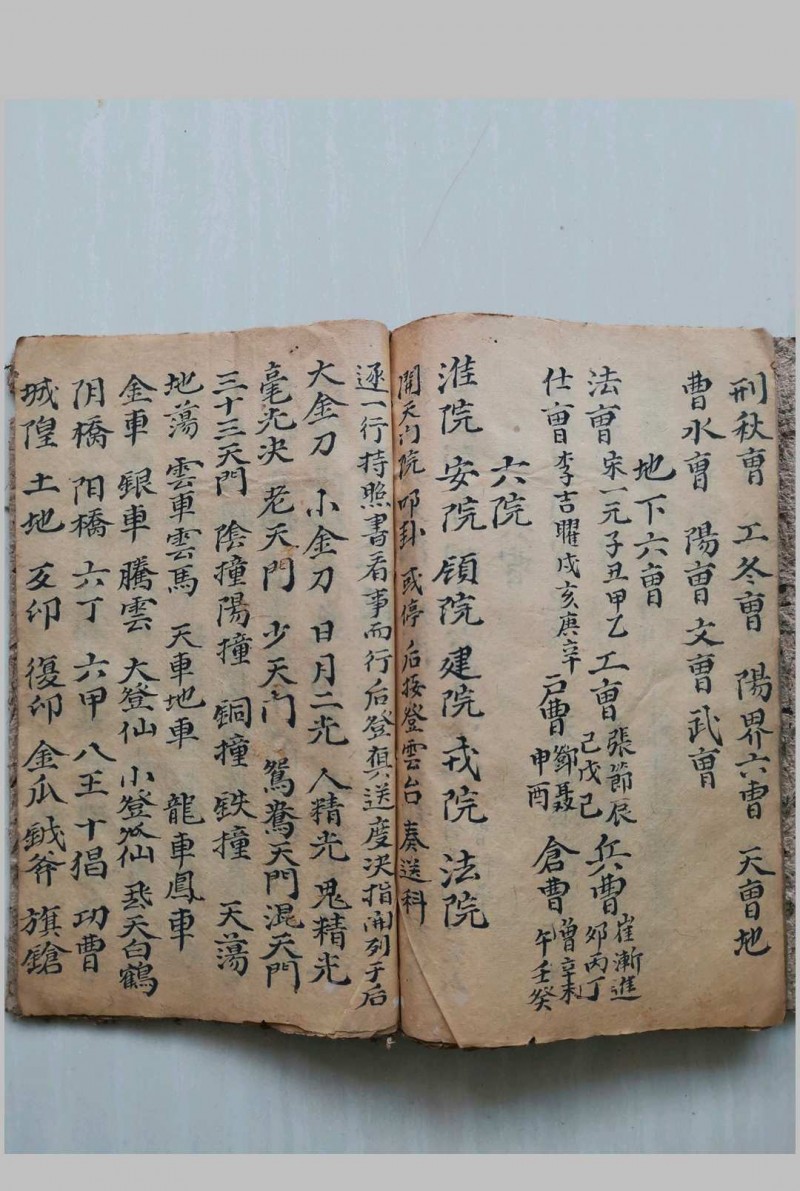 刑秋曺 工冬曺 陽界六曺 天曺地
曹水曺 陽曺文曺武曺
地下六曺
法曺宋一元子丑甲乙 工曺張節辰己戊己 兵曹崔漸進卯丙丁
仕曺李吉曜戌亥庚辛 戸曹鄧聶申酉 倉曹曽辛未午壬癸
六院
淮院 安院 領院 建院 戎院 法院
開天门院叩卦 或停后接登雲台 奏送科
逐一行持照書看事而行后登真送度决指开列于后
大金刀 小金刀 日月二光 人精光 鬼精光
毫光决 老天門 少天门 鴛鴦天門 混天門
三十三天門 陰撞陽撞 铜撞 鉄撞 天蕩
地蕩 雲車雲馬 天車地車 龍車鳳車
金車 銀車 騰雲 大登仙 小登仙 飛天白鶴
阴橋 阳橋 六丁 六甲 八王 十猖 功曹
城隍 土地 反印 復印 金瓜钺斧 旗鎗